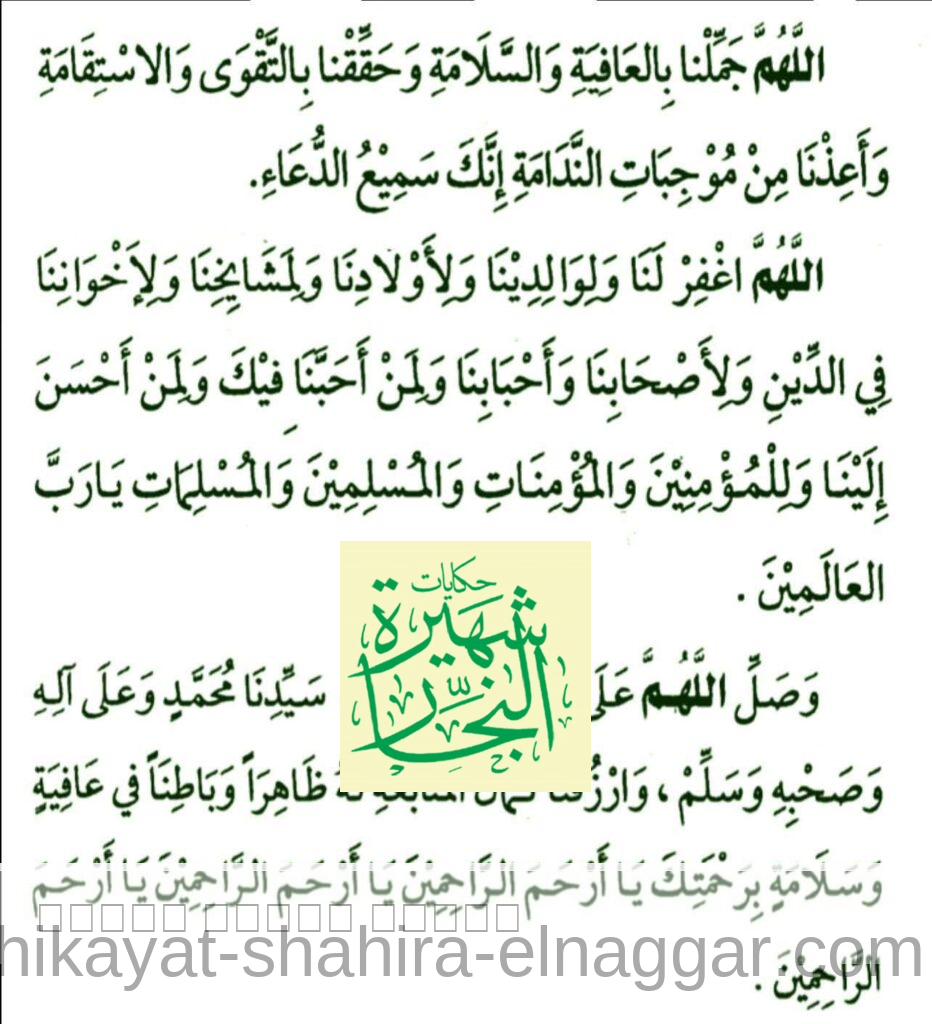 اللَّهُمَّ جَمِّلْنا بِالعَافِيَةِ وَالسَّلَامَةِ وَحَقِّقْنا بِالتَّقْوَى وَالاسْتِقَامَةِ
وَأَعِذْنَا مِنْ مُوْجِبَاتِ النَّدَامَةِ إِنَّكَ سَمِيْعُ الدُّعَاءِ.
اللَّهُمَّ اغْفِرْ لَنَا وَلِوَالِدِيْنَا وَلِأَوْلادِنَا وَلِمَشَايِخِنَا وَلِإخْوَانِنَا
فِي الدِّيْنِ وَلِأَصْحَابِنَا وَأَحْبَابِنَا وَلِمَنْ أَحَبَّنَا فِيْكَ وَلِمَنْ أَحْسَنَ
إِلَيْنَا وَلِلْمُؤْمِنِيْنَ وَالمُؤْمِنَاتِ وَالمُسْلِمِيْنَ وَالمُسْلِمَاتِ يَارَبَّ
العَالَمِيْنَ .
حكايات
شهيرة
النجار
وَصَلِّ اللَّهُمَّ عَلَى سَيِّدِنَا مُحَمَّدٍ وَعَلَى آلِهِ
وَصَحْبِهِ وَسَلِّمْ ، وَارْزُقْنَا لَهُ ظَاهِرَاً وَبَاطِنَاً في عَافِيَةٍ
وَسَلَامَةٍ بِرَحْمَتِكَ يَا أَرْحَمَ الرَّاحِمِيْنَ يَا أَرْحَمَ الرَّاحِمِيْنَ يَا أَرْحَمَ
hikayat-shahira-elnaggar.com
الرَّاحِمِيْنَ .